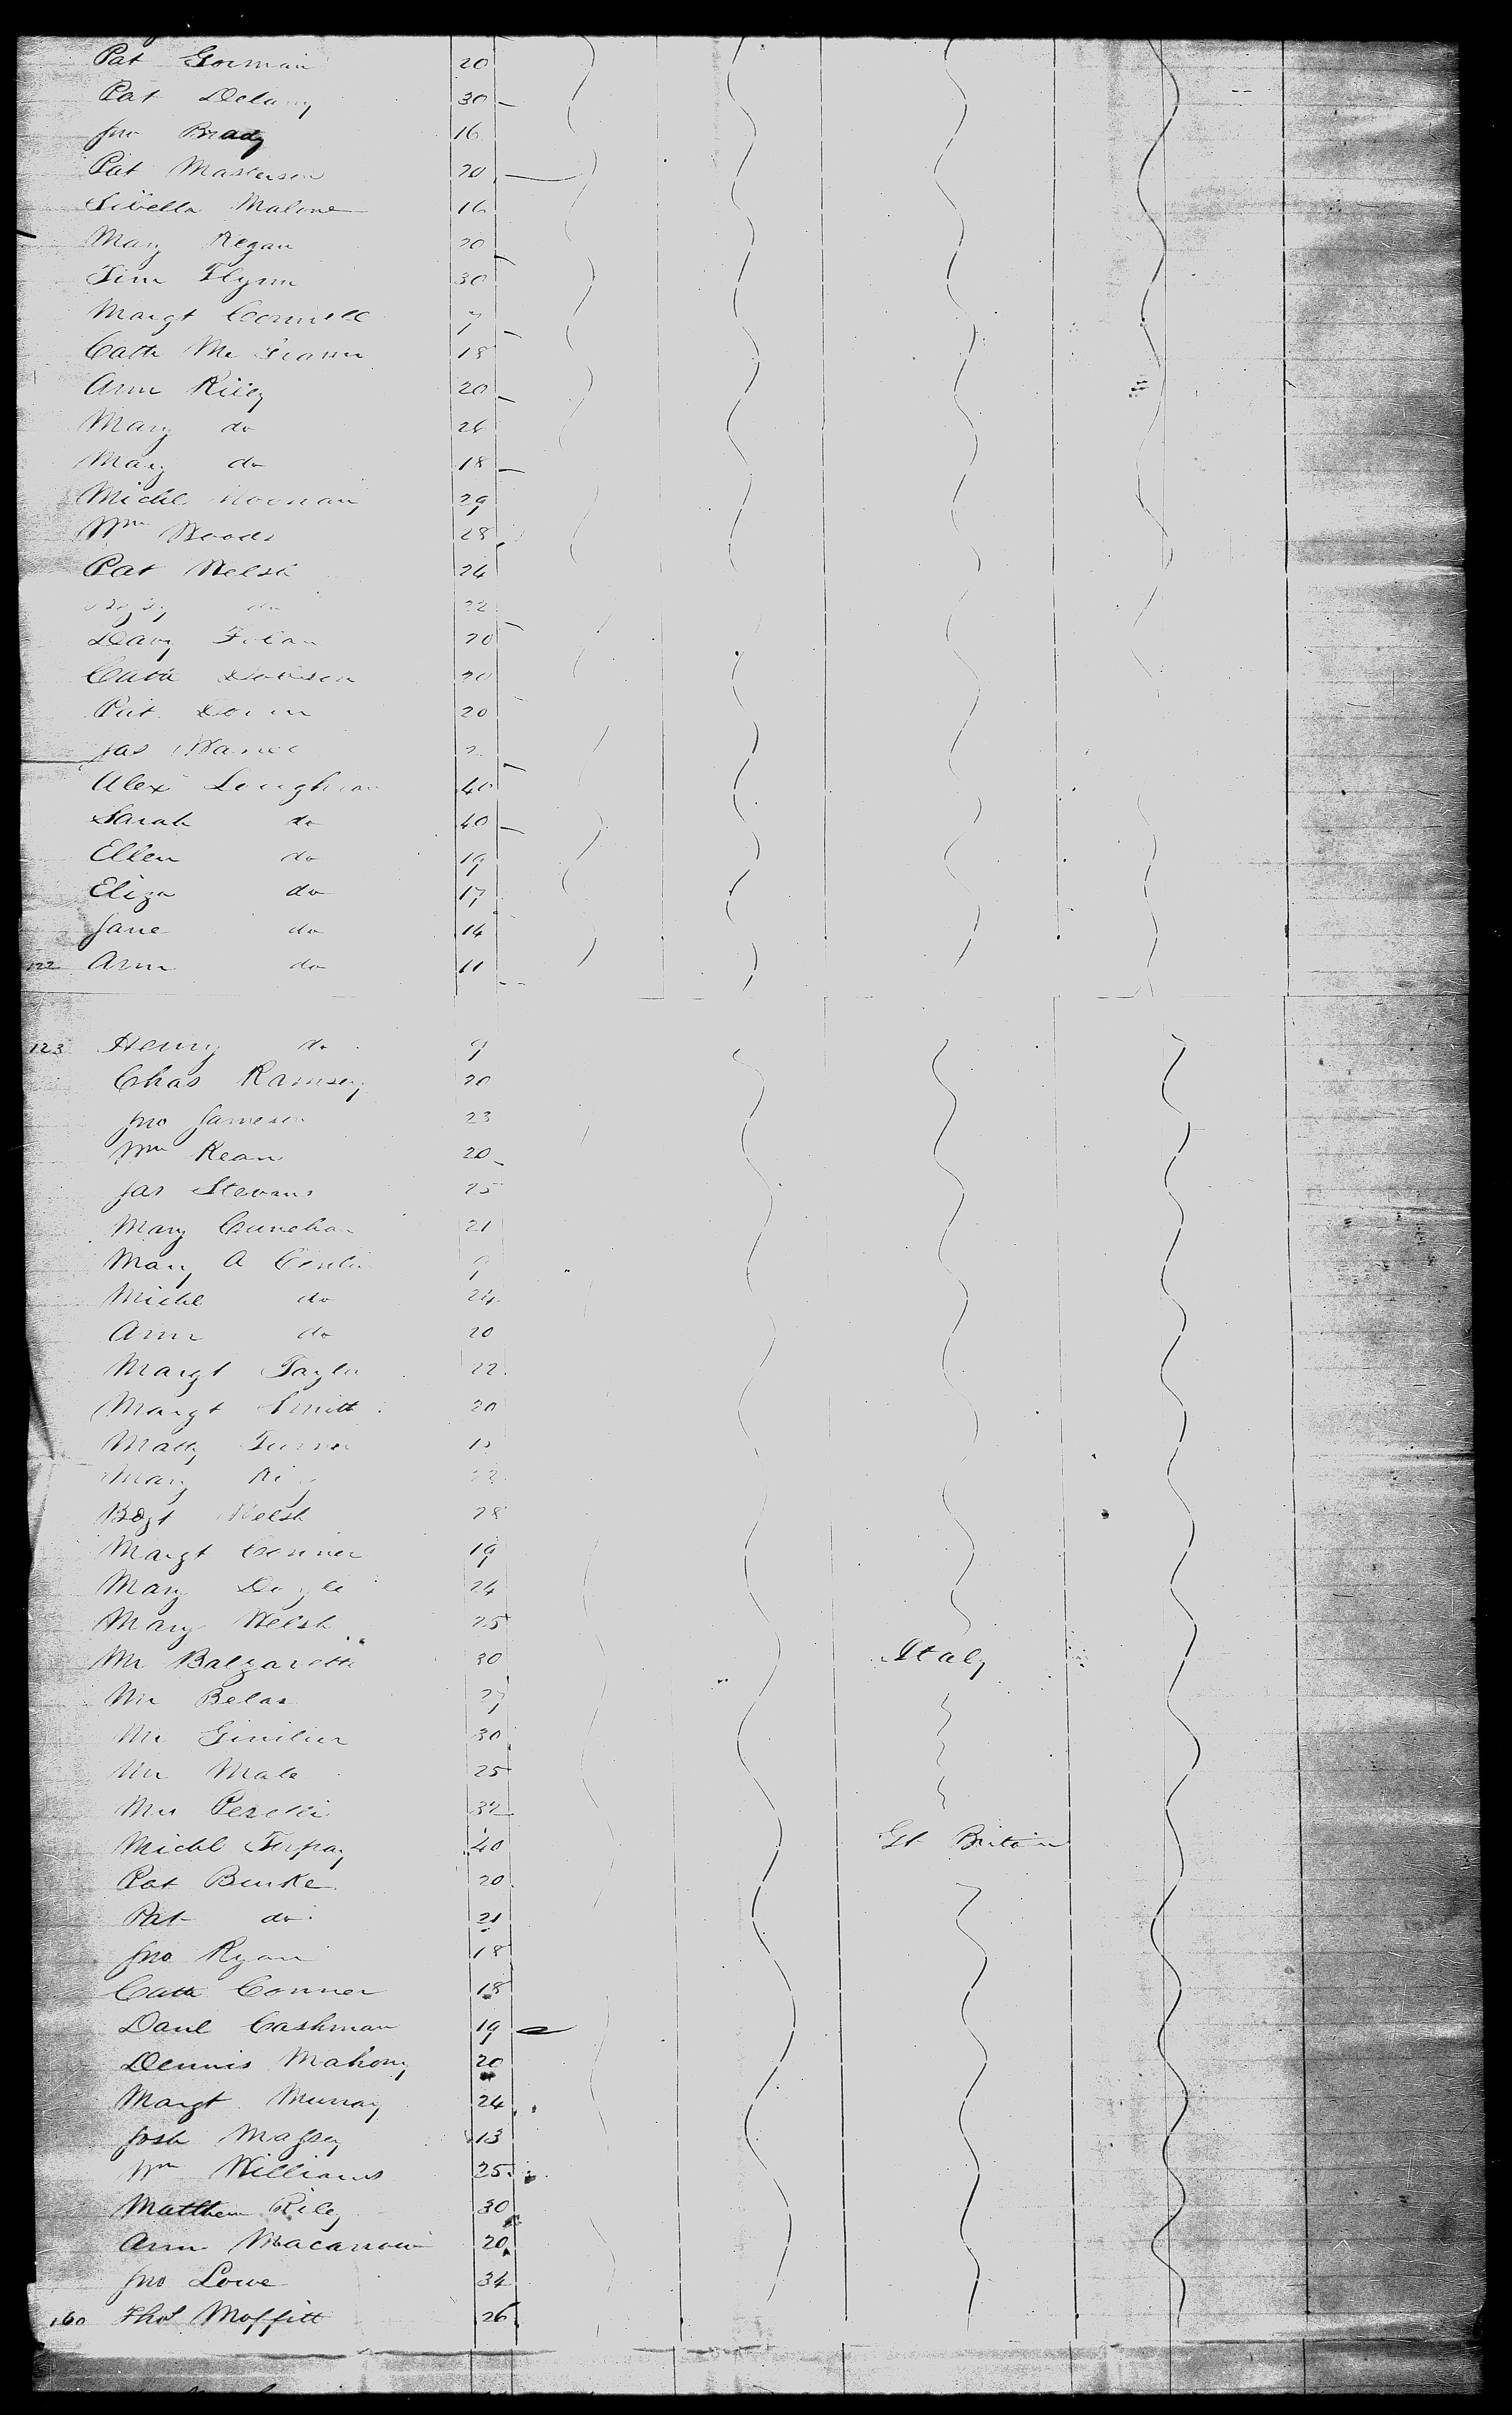 Pat Gorman 20
Pat Delany 30
Jno Brady 16
Pat Masterson 20
Sibella Malone 16
Mary Regan 20
Tim Flynn 30
Margt 7
Cath Mc 18
Ann Riley 20
Mary do 26
Mary do 18
Michl Noonan 29
Wm Woods 28
Pat Welsh 24
do 22
Davy 20
Cath 20
Pat 20
Jas
Alex Loughran 40
Sarah do 40
Ellen do 19
Eliza do 17
Jane do 14
122 Ann do 11
123 Henry do 9
Chas Ramsey 20
Jno Jameson 23
Wm Kean 20
Jas Stevens 25
Mary 21
Mary A 9
Michl do 24
Ann do 20
Margt Taylor 22
Margt Smith 20
Matty Turner
Mary 22
Bdgt Welsh 28
Margt Conner 19
Mary Doyle 24
Mary Welsh 25
Mr Balzaretti 30 Italy
Mr Belas 27
Mr 30
Mr Male 25
Mr 32
Michl Torpay 40 Gt Britain
Pat Burke 20
Pat do 21
Jno Ryan 18
Cath Conner 18
Danl Cashman 19
Dennis Mahony 20
Margt Murray 24
Josh Massey 13
Wm Williams 25
Matthew Riley 30
Ann 20
Jno Lowe 34
160 Thos Moffitt 26